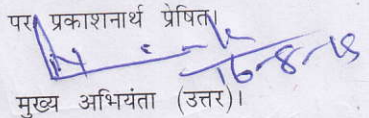 पर प्रकाशनार्थ प्रेषित।
16-8-18
मुख्य अभियंता (उत्तर)।